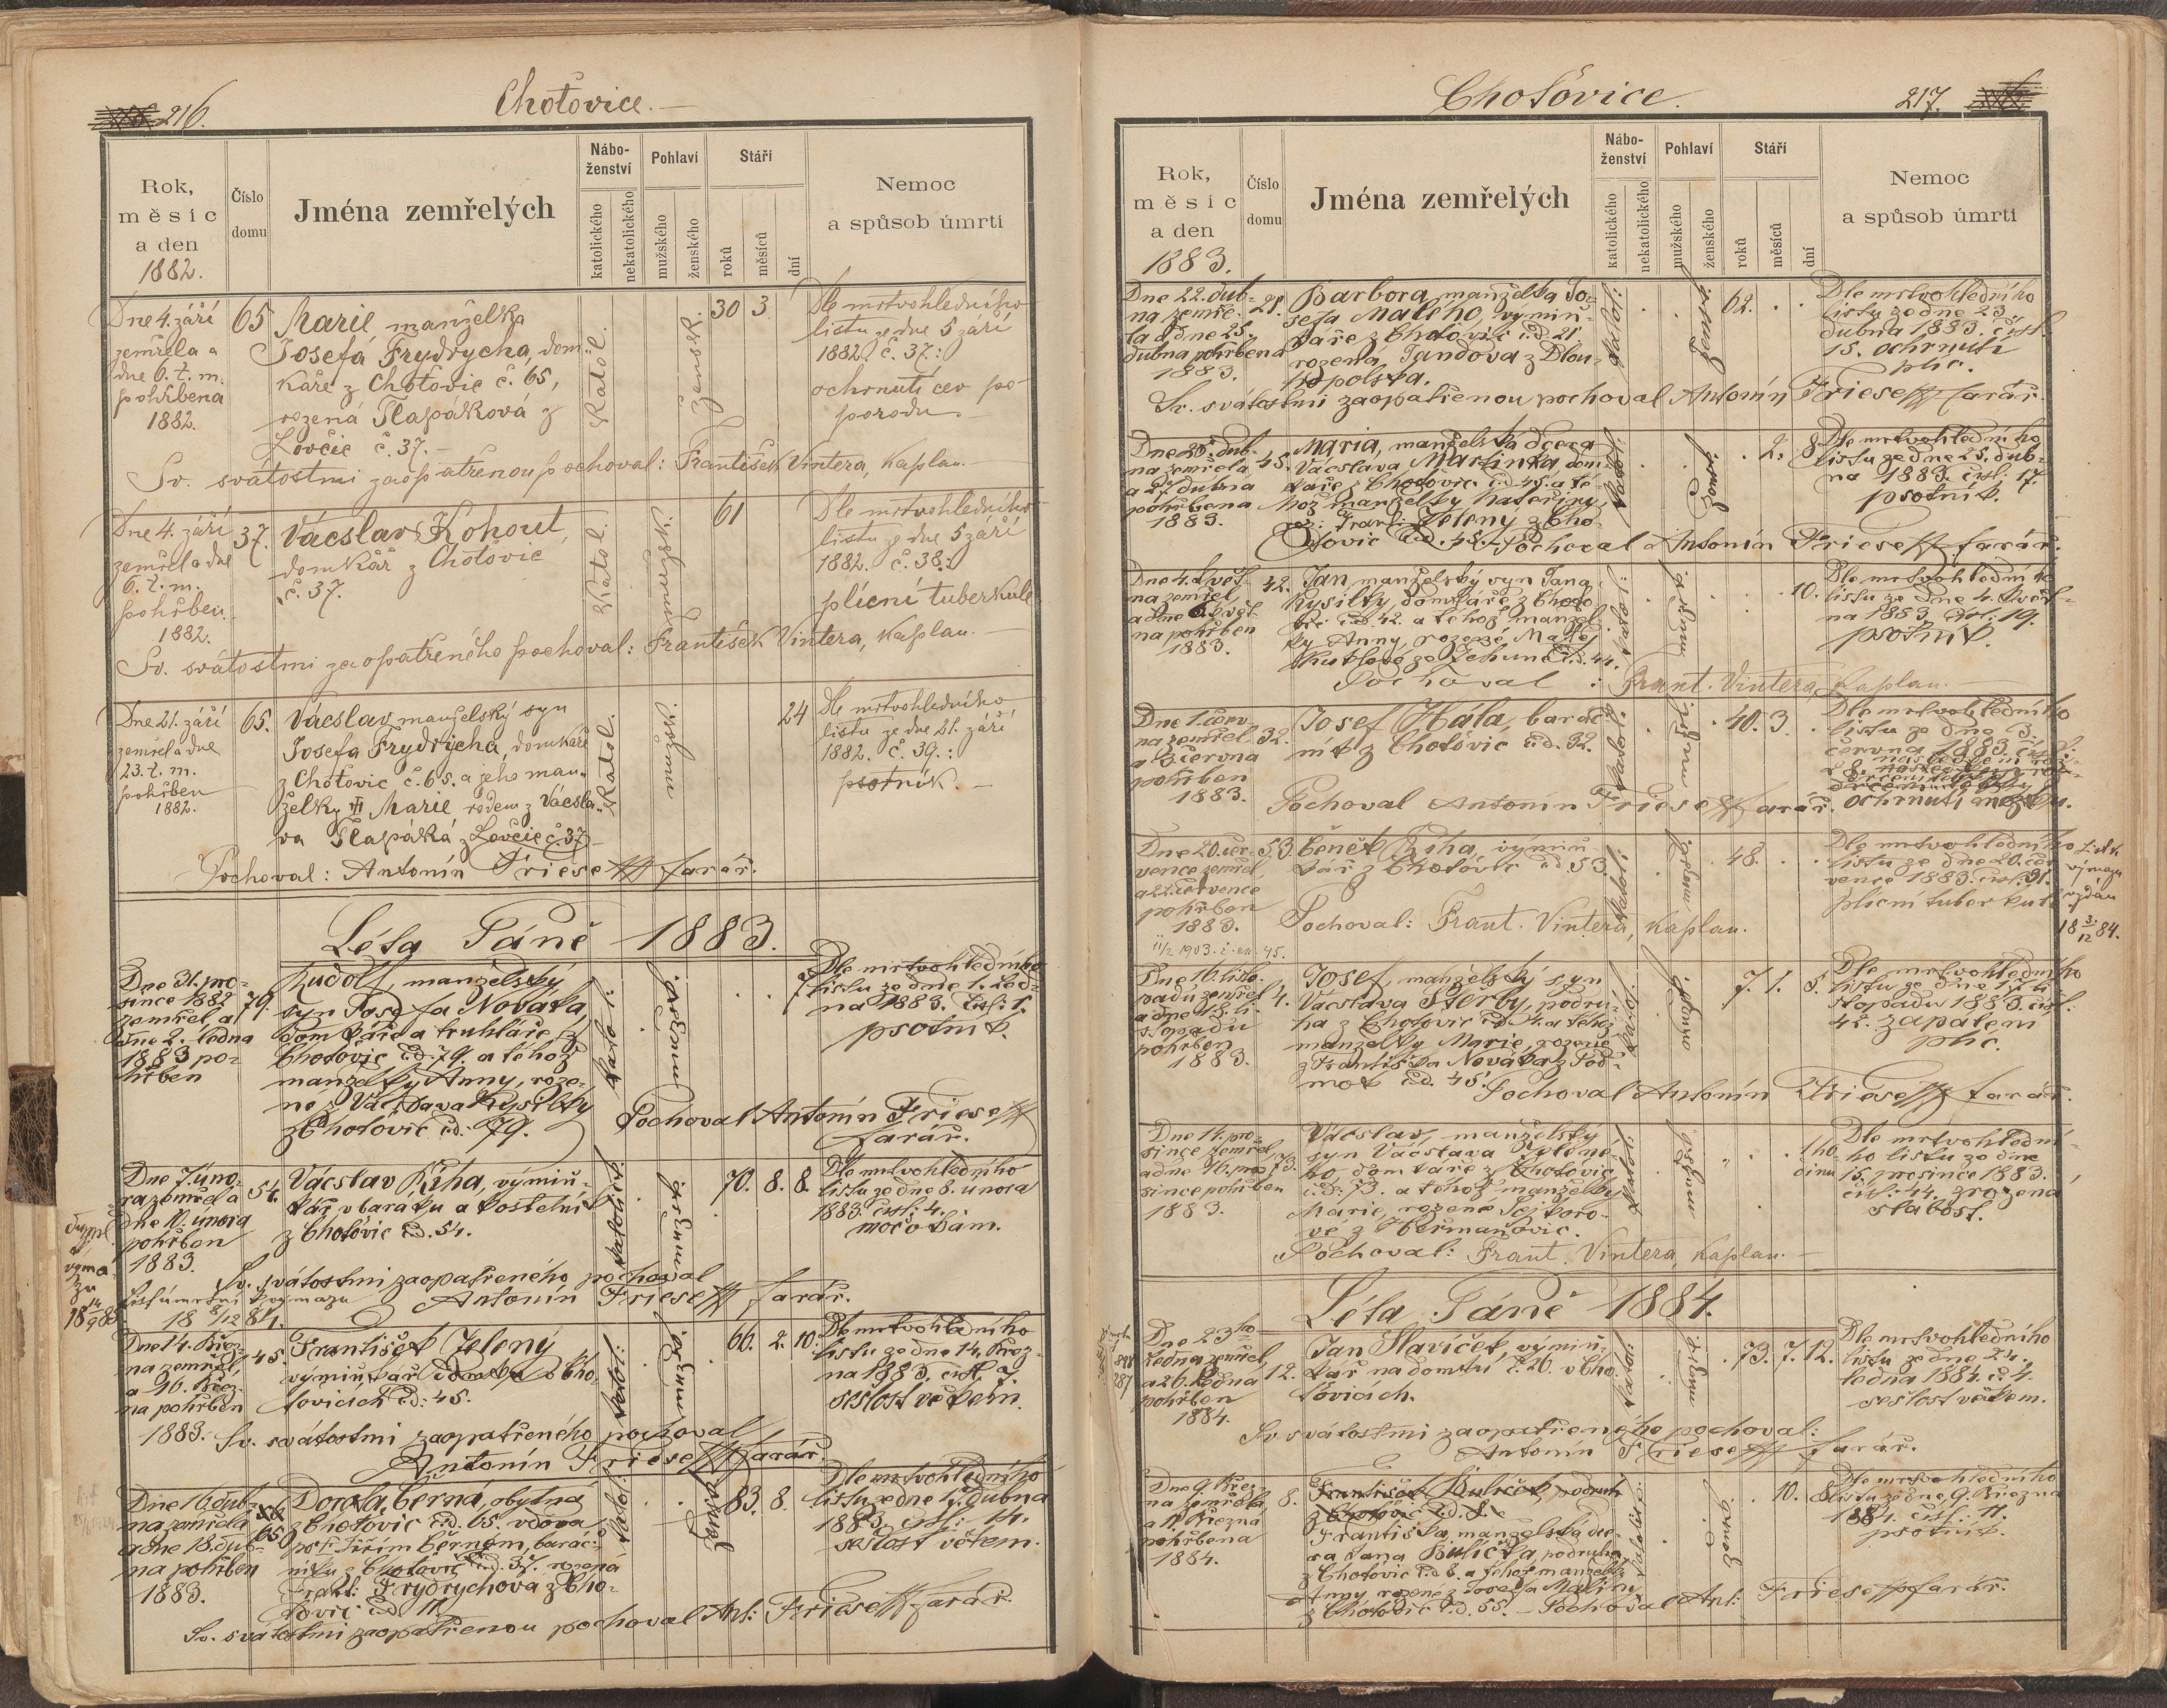 216.
Chotovice.
Rok,
měsíc
a den
1882.
Číslo
domu
Jména zemřelých
Nábo-
ženství
katolického
nekatolického
Pohlaví
mužského
ženského
Stáří
roků
měsíců
dní
Nemoc
a spůsob úmrtí
Dne 4. září
zemřela a
dne 6. t. m.
pohřbena
1882.
65
Marie manželka
Josefa Frydrycha, dom-
káře z Chotovic č. 65,
rozená Tlapáková z
Lovčic č. 37.
Katol.
žensk.
30 3
Dle mrtvohledního
listu ze dne 5 září
1882. č. 37:
ochrnutí cev po
porodu.
Sv. svátostmi zaopatřenou pochoval: František Vintera, kaplan.
Dne 4. září
zemřel a dne
6. t. m.
pohřben.
1882.
37.
Václav Kohout,
domkář z Chotovic
č. 37.
Katol.
mužské
61
Dle mrtvohledního
listu ze dne 5 září
1882. č. 38:
plícní tuberkule
Sv. svátostmi zaopatřeného pochoval: František Vintera, kaplan.
Dne 21. září
zemřel a dne
23. t. m.
pohřben
1882.
65.
Václav manželský syn
Josefa Frydrycha, domkáře
z Chotovic č. 65. a jeho man-
želky Marie rodem z Václa-
va Tlapáka z Lovčic č. 37
Katol.
24
Dle mrtvohledního
listu ze dne 21. září
1882. č. 39.:
psotník.
Pochoval: Antonín Friese farář.
Léta Páně 1883.
Dne 31. pro-
since 1882
zemřel a
dne 2. ledna
1883 po-
hřben
79.
Rudolf, manželský
syn Josefa Nováka,
domkáře a truhláře z
Chotovic čd. 79. a téhož
manželky Anny, roze-
né z Václava Kysilky
z Chotovic čd. 79.
Katol.
Dle mrtvohledního
listu ze dne 1. led-
na 1883. čísl. 1.
psotník.
Pochoval Antonín Friese
farář.
Dne 7. úno-
ra zemřel a
dne 10. února
pohřben
1883.
54.
Václav Říha, výmin-
kář v baráku a kostelník
z Chotovic čd. 54.
70. 8. 8.
Dle mrtvohledního
listu ze dne 8. února
1883. čísl. 4.
močokam.
Sv. svátostmi zaopatřeného pochoval
Antonín Friese farář.
Dne 14. břez-
na zemřel,
a 16. břez-
na pohřben
1883.
45.
František Zelený
výminkář v Cho-
tovicích čd. 45.
66. 2. 10.
Dle mrtvohledního
listu ze dne 14. břez-
na 1883. čísl. 7.
sešlost věkem.
Sv. svátostmi zaopatřeného pochoval
Antonín Friese farář.
Dne 16. dub-
na zemřela
a dne 18. dub-
na pohřben
1883.
65
Dorota Černá, obytná
z Chotovic čd. 65. vdova
po Jiřím Černém, barác-
níku z Chotovic čd. 37. rozená
Frydrychova z Cho-
tovic čd. 11.
83. 8.
Dle mrtvohledního
listu ze dne 17. dubna
1883. čísl. 14.
sešlost věkem.
Sv. svátostmi zaopatřenou pochoval Ant: Friese farář.
Chotovice.
217.
Rok,
měsíc
a den
1883.
Číslo
domu
Jména zemřelých
Nábo-
ženství
katolického
nekatolického
Pohlaví
mužského
ženského
Stáří
roků
měsíců
dní
Nemoc
a spůsob úmrtí
Dne 22. dub-
na zemře-
la a dne 25.
dubna pohřbena
1883.
21.
Barbora manželka Jo-
sefa Malého, výmin-
káře z Chotovic čd. 21.
rozená Jandova z Dlou-
hopolska.
62.
Dle mrtvohledního
listu ze dne 23.
dubna 1883. čísl.
15. ochrnutí
plic.
Sv. svátostmi zaopatřenou pochoval Antonín Friese farář.
Dne 25. dub-
na zemřela
a 27. dubna
pohřbena
1883.
45.
Maria, manželská dcera
Václava Martinka, dom-
káře z Chotovic čd. 45. a té-
hož manželky Kateřiny,
roz: Frant: Zelený z Cho-
tovic čd. 45. Pochoval Antonín Friese farář.
2. 8.
Dle mrtvohledního
listu ze dne 25. dub-
na 1883. čísl. 17.
psotník.
Dne 4. květ-
na zemřel
a dne 6. květ-
na pohřben
1883.
42.
Jan manželský syn Jana
Kysilky, domkáře z Choto-
vic čd. 42. a téhož manžel-
ky Anny, rozené
ze Žehuně čd. 44.
10.
Dle mrtvohledního
listu ze dne 4. květ-
na 1883. čísl. 19.
psotník.
Pochoval: Frant. Vintera, kaplan.
Dne 1. červ-
na zemřel
a 3. června
pohřben
1883.
32.
Josef Hála, barác-
ník z Chotovic čd. 32.
40. 3.
Dle mrtvohledního
listu ze dne 3.
června 1883.
ochrnutí mozku.
Pochoval Antonín Friese farář.
Dne 20. čer-
vence zemřel
a 22. července
pohřben
1883.
53.
Čeněk Říha, výmin-
kář z Chotovic čd. 53.
48.
Dle mrtvohledního
listu ze dne 20. čer-
vence 1883. čísl. 31.
plícní tuberkule
Pochoval: Frant. Vintera, kaplan.
11/2 1903. č. ex. 45.
Dne 16. listo-
padu zemřel
a dne 18. li-
stopadu
pohřben
1883.
4.
Josef, manželský syn
Václava Štěrby, podru-
ha z Chotovic čd. 4. a téhož
manželky Marie, rozené
z Františka Nováka z Pod-
mok čd. 45.
7. 1. 5.
Dle mrtvohledního
listu ze dne 17. li-
stopadu 1883. čísl.
42. zápalem
plic.
Pochoval Antonín Friese farář.
Dne 14. pro-
since zemřel
a dne 16. pro-
since pohřben
1883.
73.
Václav, manželský
syn Václava
domkáře z Chotovic
čd. 73. a téhož manželky
Marie, rozené
z Heřmanovic.
1 ho-
dinu
Dle mrtvohlední-
ho listu ze dne
15. prosince 1883.
čísl. 44. zrozená
slabost.
Pochoval: Frant. Vintera, kaplan.
Léta Páně 1884.
Dne 23ho
ledna zemřel
a 26. ledna
pohřben
1884.
12.
Jan Slavíček, výmin-
kář na domku č. 26. v Cho-
tovicích.
73. 7. 12.
Dle mrtvohledního
listu ze dne 24.
ledna 1884. č. 4.
sešlost věkem.
Sv. svátostmi zaopatřeného pochoval:
Antonín Friese farář.
Dne 9. břez-
na zemřela
a 11. března
pohřbena
1884.
8.
Františka, manželská dce-
ra Jana Bulička, podruha
z Chotovic čd. 8. a téhož manželky
Anny rozené z Josefa Maliny
z Chotovic čd. 55. Pochoval Ant: Friese farář.
10. 8.
Dle mrtvohledního
listu ze dne 9. března
1884. čísl. 11.
psotník.